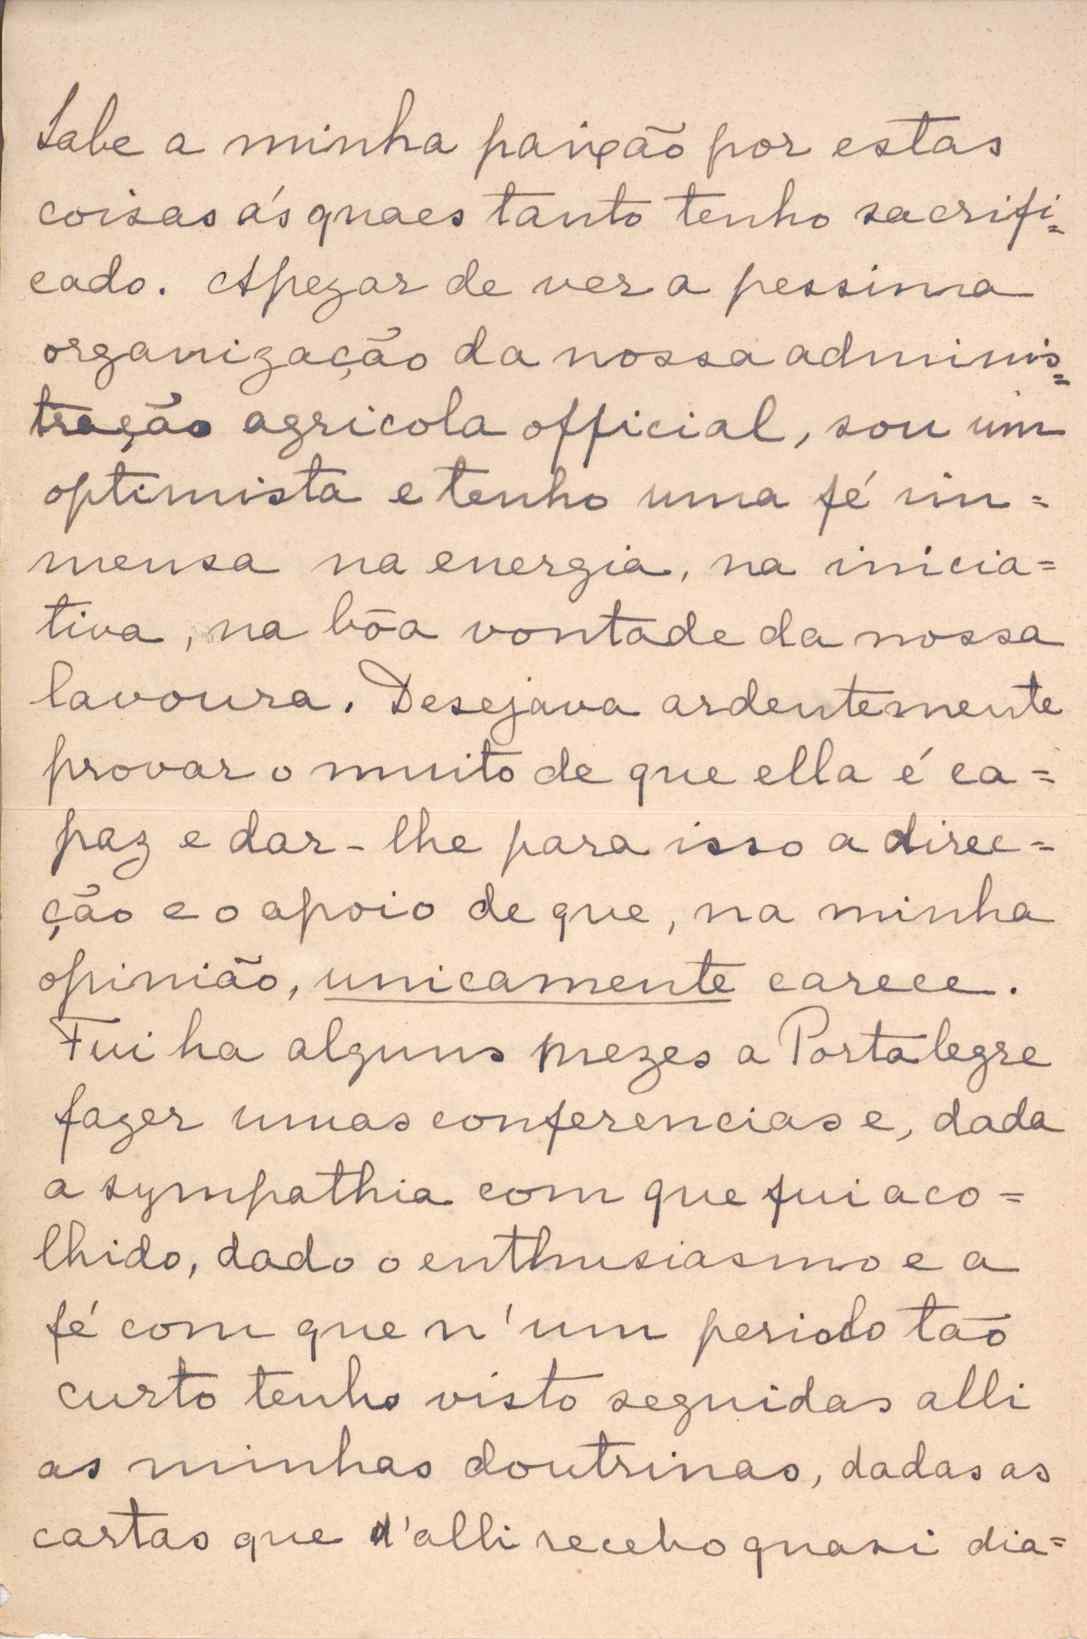 Sabe a minha paixão por estas
coisas ás quaes tanto tenho sacrifi=
cado. Apezar de ver a pessima
organização da nossa adminis=
tração agricola official, sou um
optimista e tenho uma fé im=
mensa na energia, na inicia=
tiva, na bōa vontade da nossa
lavoura. Desejava ardentemente
provar o muito de que ella é ca=
paz e dar-lhe para isso a direc=
ção e o apoio de que, na minha
opinião, unicamente carece.
Fui ha alguns mezes a Portalegre
fazer umas conferencias e, dada
a sympathia com que fui aco=
lhido, dado o enthusiasmo e a
fé com que n'um periodo tão
curto tenho visto seguidas alli
as minhas doutrinas, dadas as
cartas que d'alli recebo quasi dia=